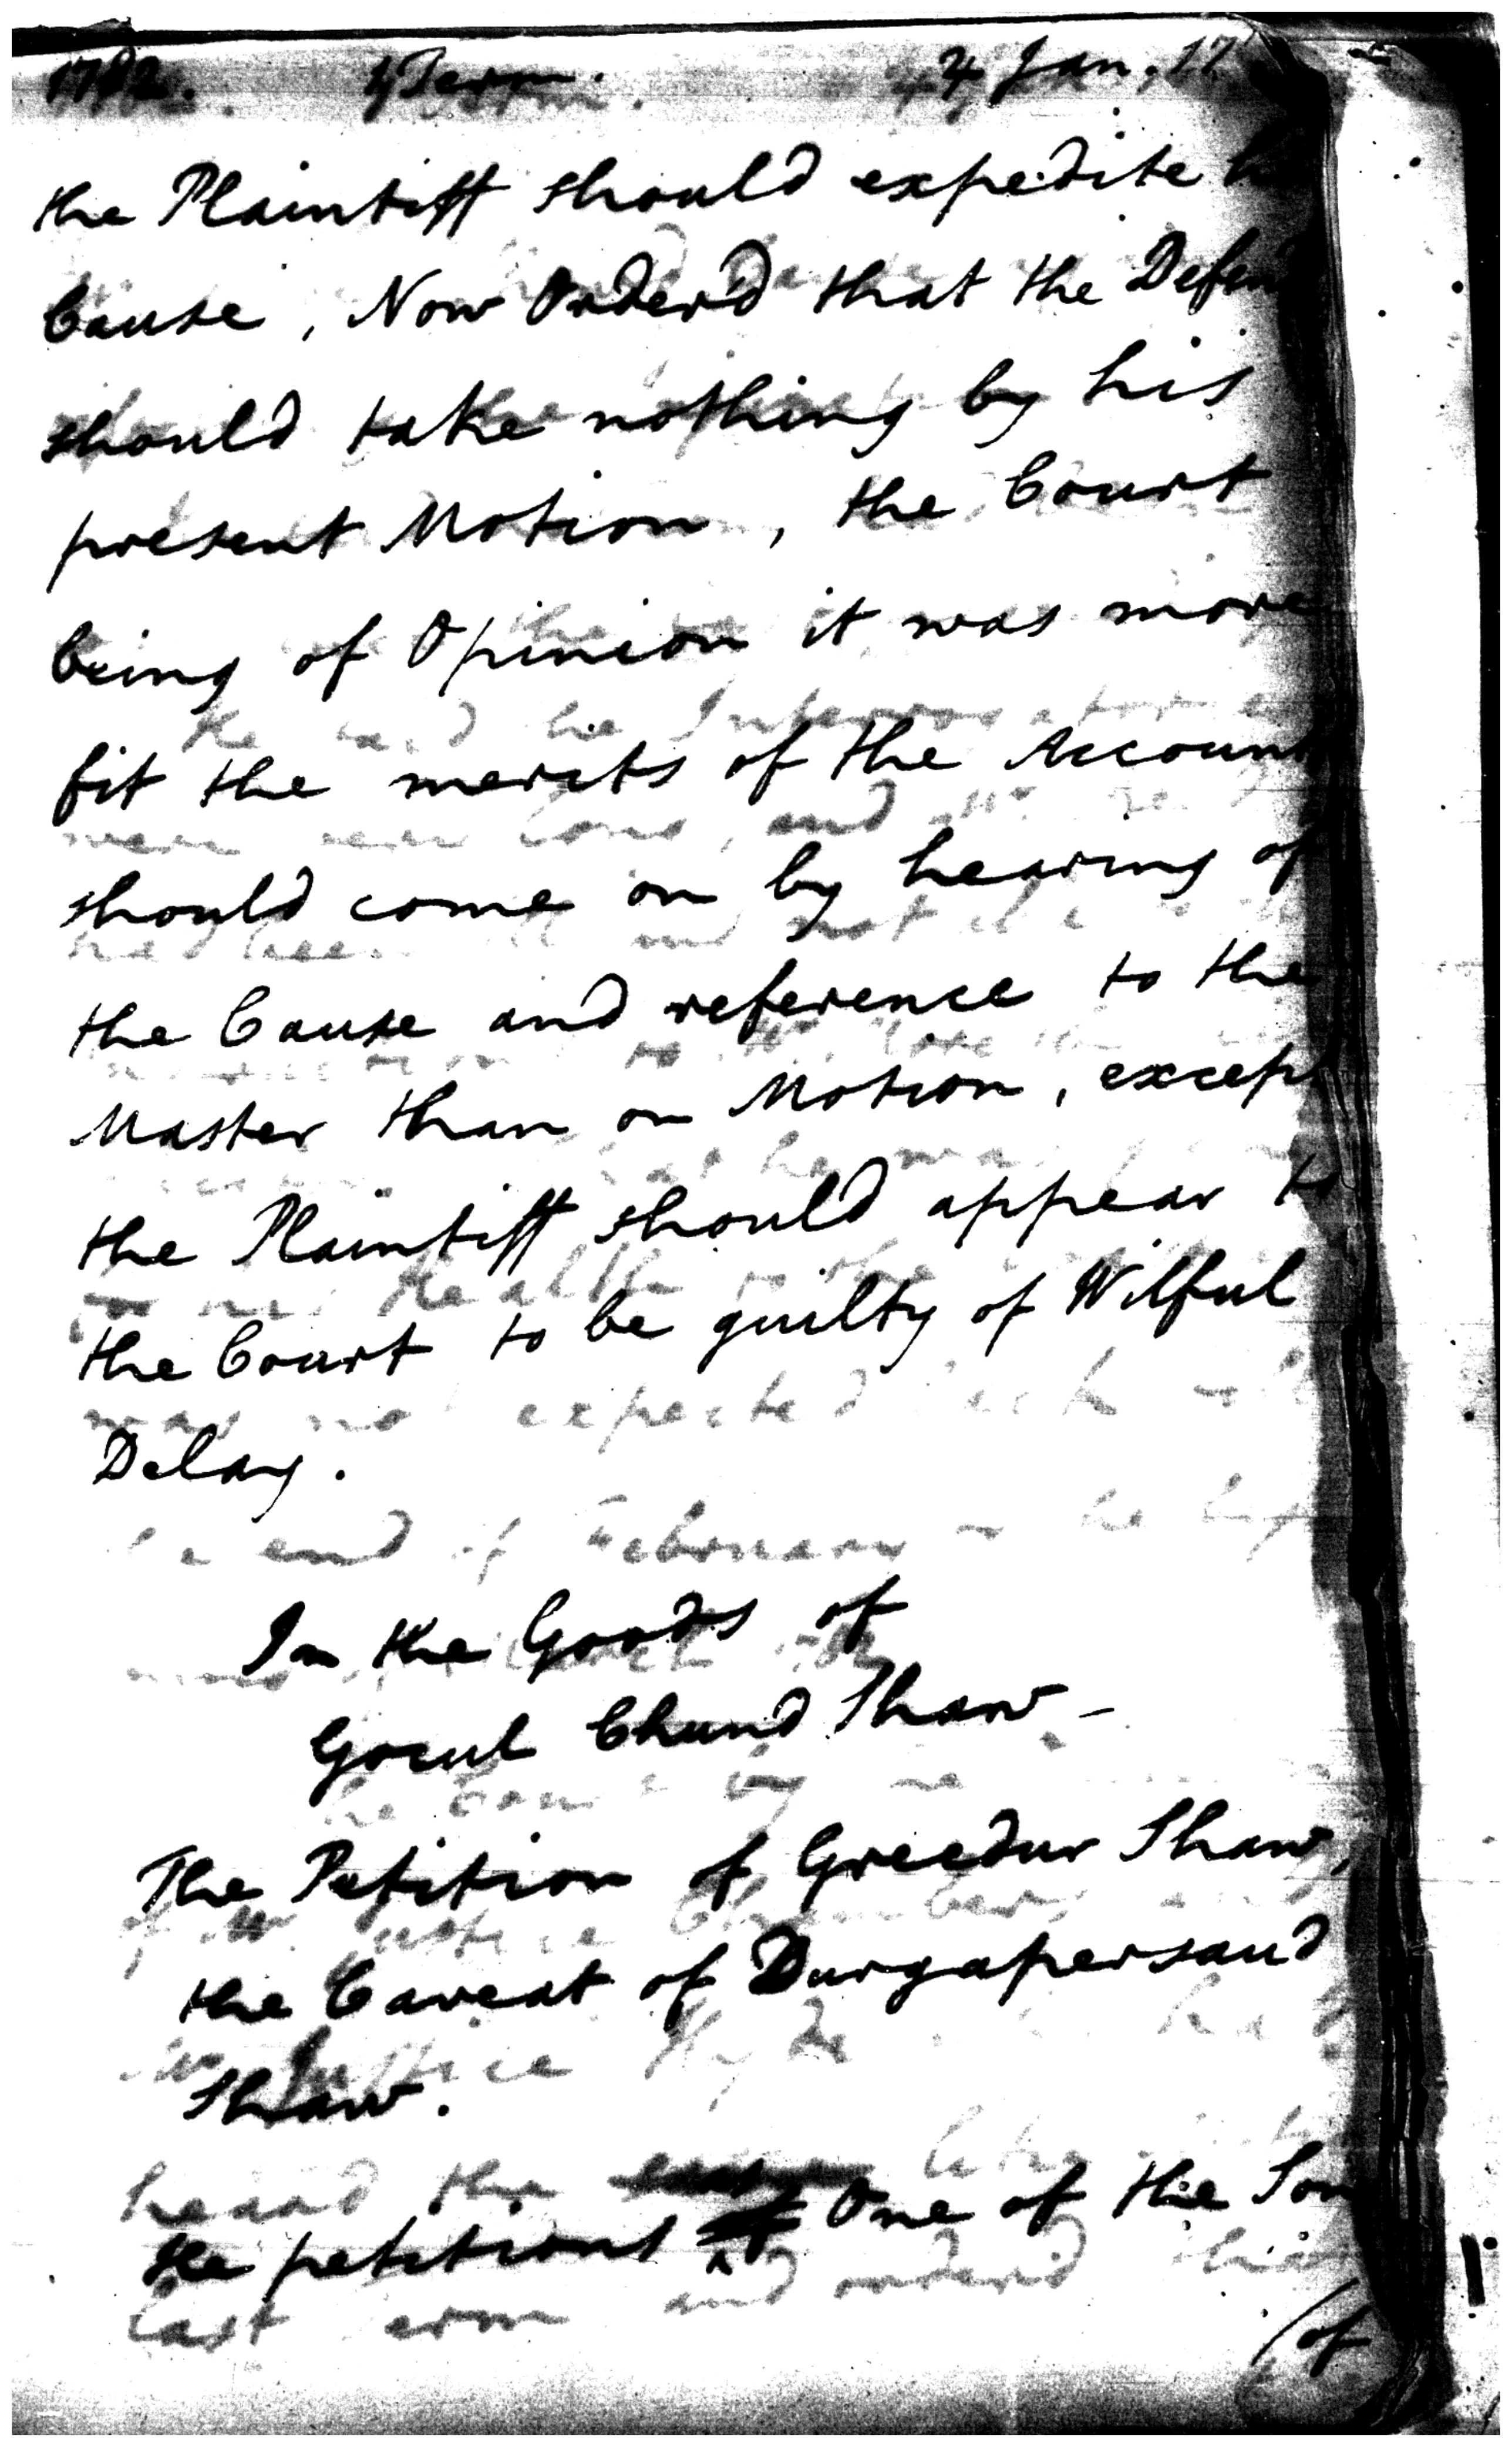 1782. 1 Term. 4 Jan. 17
the Plaintiff should expedite
Cause, Now Order'd that the Defen
should take nothing by his
present Motion, the Court
being of Opinion it was more
fit the merits of the Account
should come on by hearing of
the Cause and reference to the
Master than on Motion, except
the Plaintiff should appear to
the Court to be guilty of Wilful
Delay.
In the Goods of
Gocul Chund Shaw -
The Petition of Greedur Shaw,
the Caveat of Durgapersaud
Shaw.
the petitions One of the Son
(of